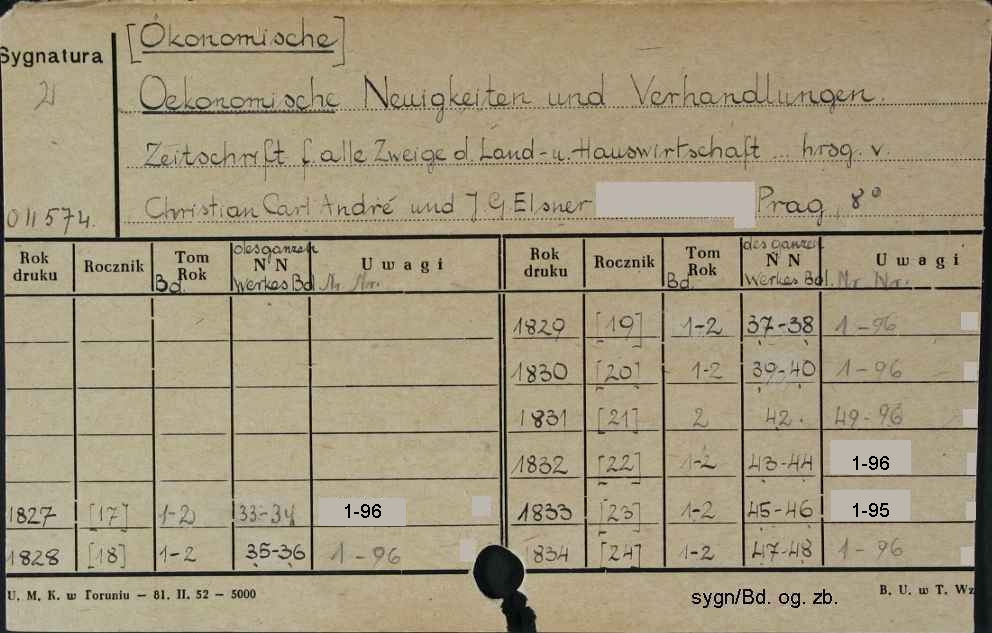 [Ökonomische]
Sygnatura
Oekonomische Neuigkeiten und Verhandlungen.
Zeitschrift f. alle Zweige d. Land- u. Hauswirtschaft ... hrsg. v.
011574.
Christian Carl André und J. G Elsner Prag, 8°
Rok druku Rocznik Tom Rok Bd. des ganzen NN Werkes Bd. Uwagi Nr. Nr.
Rok druku Rocznik Tom Rok Bd. des ganzen NN Werkes Bd. Uwagi Nr. Nr.
1829 [19] 1-2 37-38 1-96
1830 [20] 1-2 39-40 1-96
1831 [21] 2 42. 49-96
1832 [22] 1-2 43-44 1-96
1827 [17] 1-2 33-34 1-96
1833 [23] 1-2 45-46 1-95
1828 [18] 1-2 35-36 1-96
1834 [24] 1-2 47-48 1-96
U. M. K. w Toruniu — 81. II. 52 — 5000
sygn/Bd. og. zb.
B. U. w T. Wz